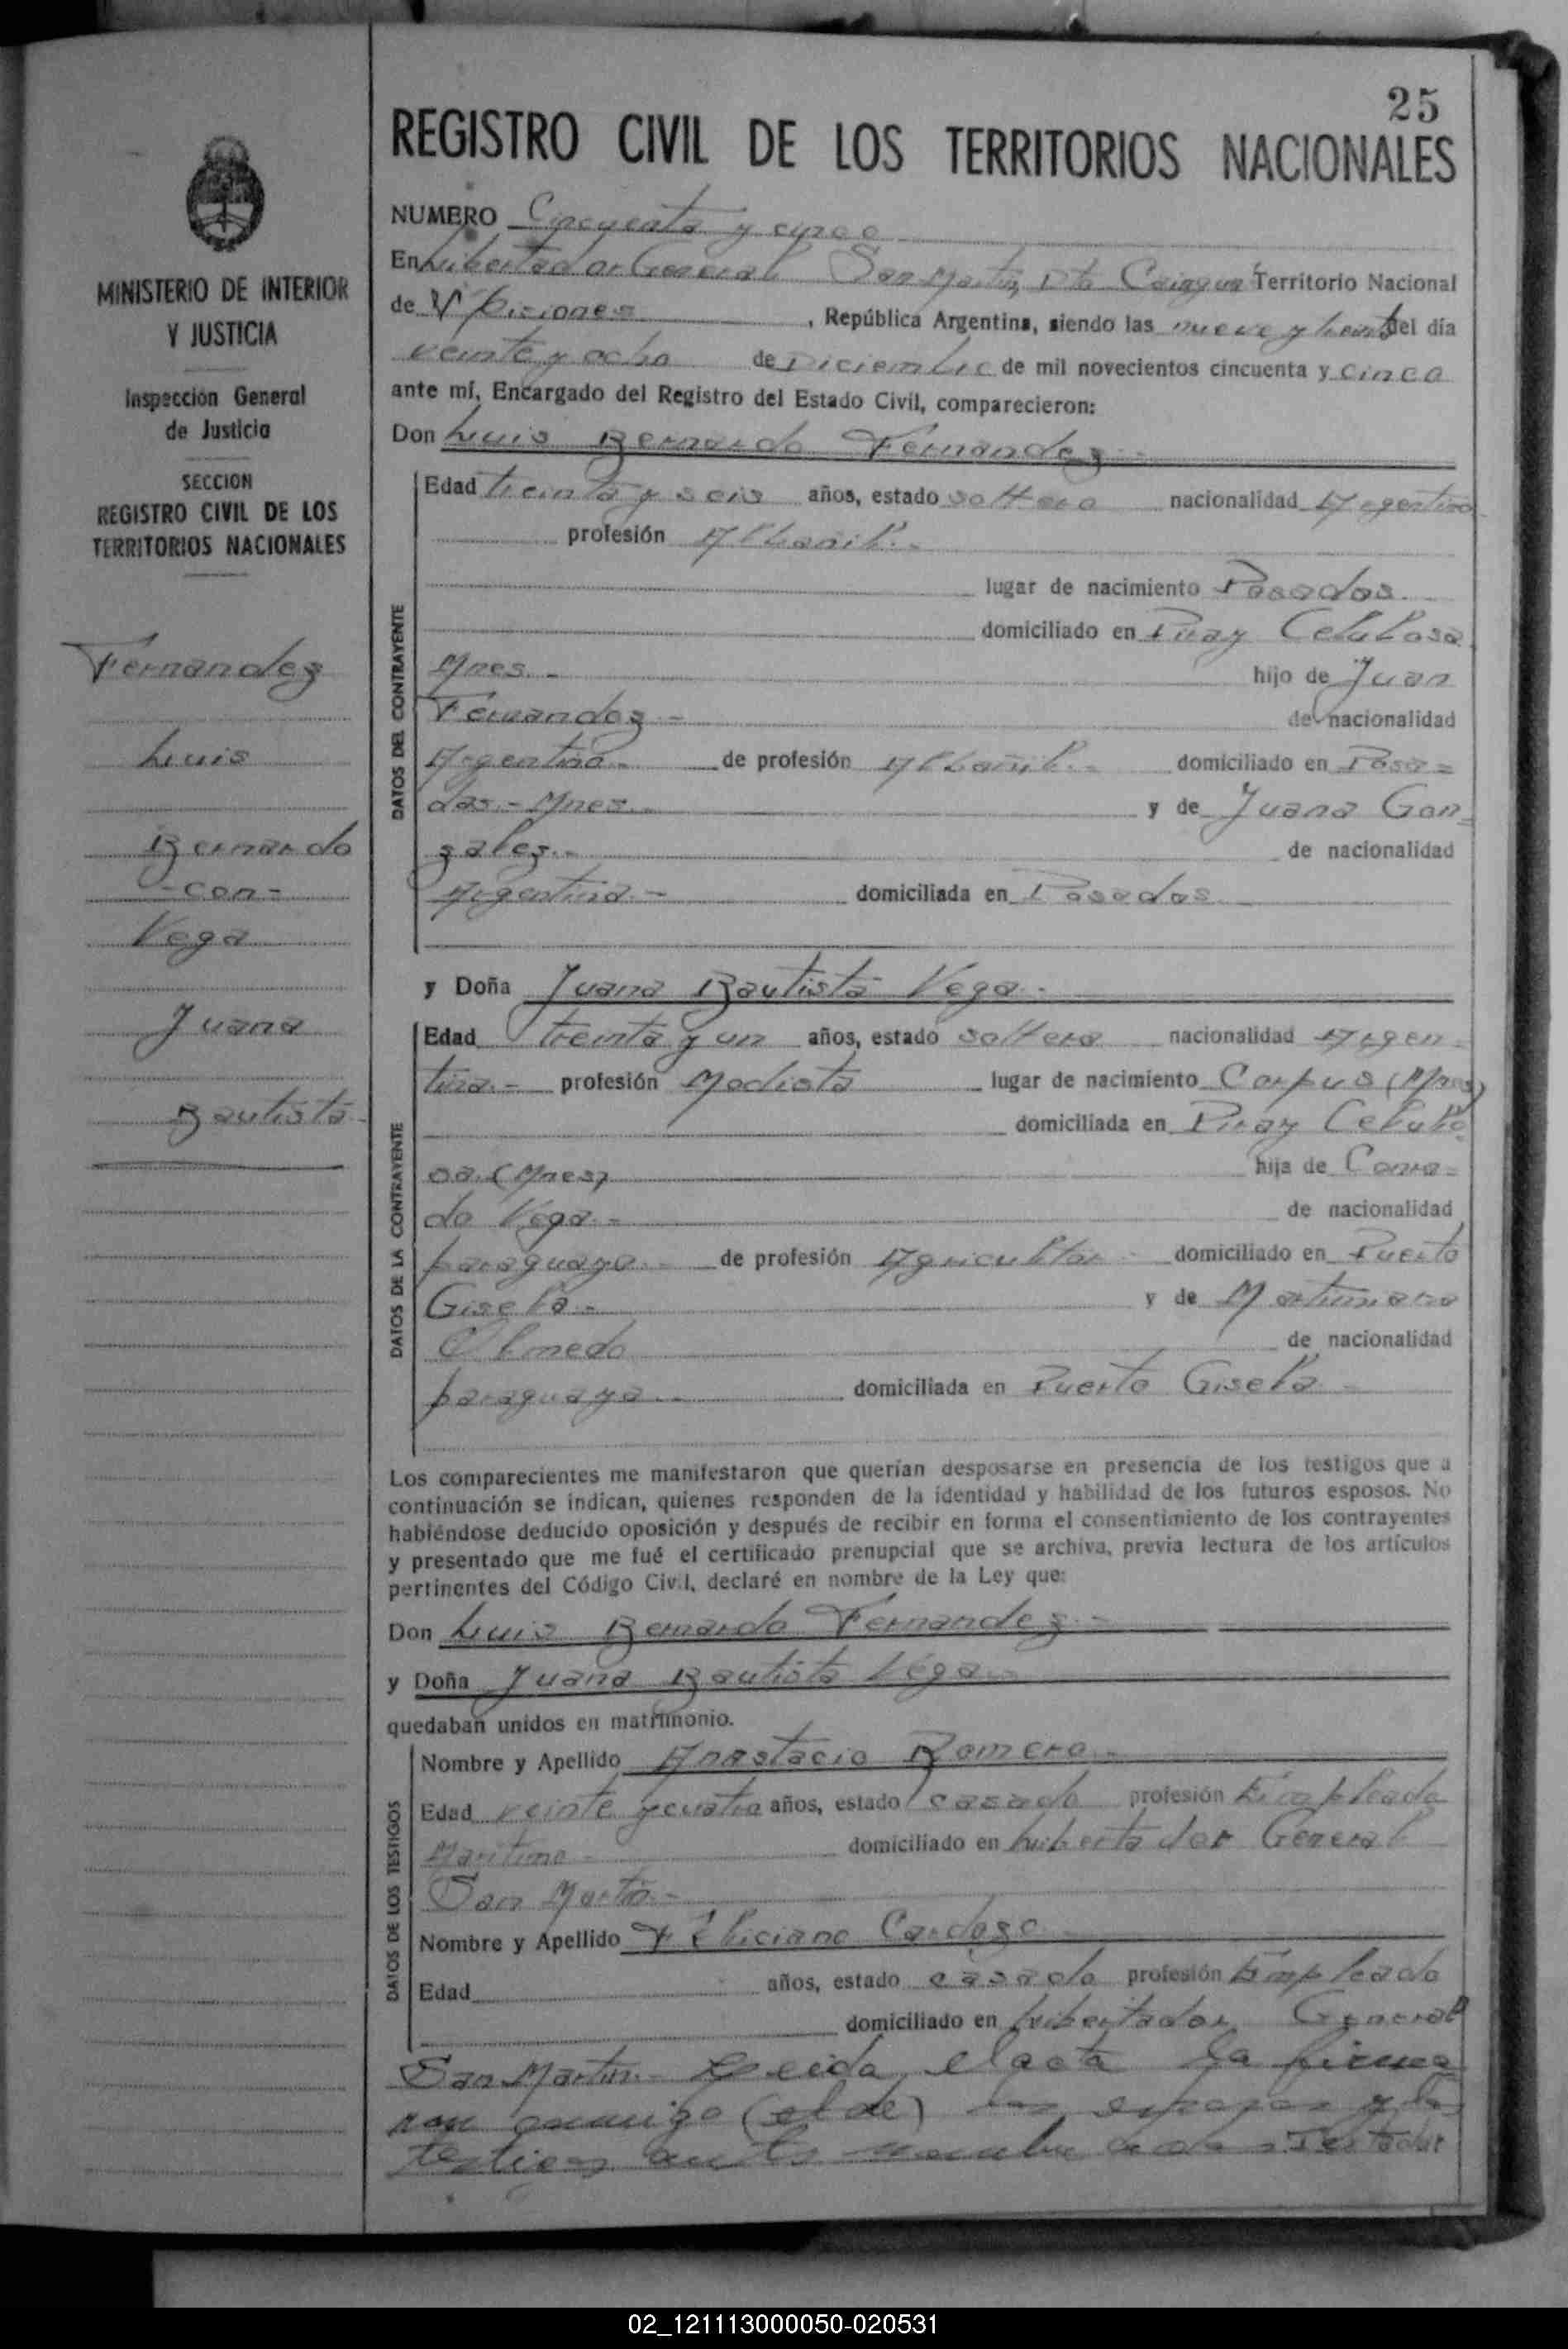 25
REGISTRO CIVIL DE LOS TERRITORIOS NACIONALES
MINISTERIO DE INTERIOR
Y JUSTICIA
Inspección General
de Justicia
SECCION
REGISTRO CIVIL DE LOS
TERRITORIOS NACIONALES
Fernandez
Luis
Bernardo
-con-
Vega
Juana
Bautista
NUMERO Cincuenta y cinco
En Libertador General San Martín, Dto Cainguá Territorio Nacional
de Misiones, República Argentina, siendo las nueve y treinta del día
veinte y ocho de Diciembre de mil novecientos cincuenta y cinco
ante mí, Encargado del Registro del Estado Civil, comparecieron:
Don Luis Bernardo Fernandez.-
DATOS DEL CONTRAYENTE
Edad treinta y seis años, estado soltero nacionalidad Argentina
profesión Albañil.-
lugar de nacimiento Posadas.
domiciliado en Piray Celulosa
Mnes.- hijo de Juan
Fernandez- de nacionalidad
Argentina.- de profesión Albañil.- domiciliado en Posa=
das.- Mnes. y de Juana Gon=
zalez.- de nacionalidad
Argentina.- domiciliada en Posadas
y Doña Juana Bautista Vega.-
DATOS DE LA CONTRAYENTE
Edad treinta y un años, estado soltera nacionalidad Argen=
tina.- profesión Modista lugar de nacimiento Corpus (Mnes)
domiciliada en Piray Celulo
sa.(Mnes) hija de Conra=
do Vega.- de nacionalidad
paraguaya.- de profesión Agricultor- domiciliado en Puerto
Gisela.- y de Martiniana
Olmedo de nacionalidad
paraguaya.- domiciliada en Puerto Gisela-
Los comparecientes me manifestaron que querían desposarse en presencia de los testigos que a
continuación se indican, quienes responden de la identidad y habilidad de los futuros esposos. No
habiéndose deducido oposición y después de recibir en forma el consentimiento de los contrayentes
y presentado que me fué el certificado prenupcial que se archiva, previa lectura de los artículos
pertinentes del Código Civil, declaré en nombre de la Ley que:
Don Luis Bernardo Fernandez.-
y Doña Juana Bautista Vega-
quedaban unidos en matrimonio.
DATOS DE LOS TESTIGOS
Nombre y Apellido Anastacio Romero-
Edad veinte y cuatro años, estado casado profesión Empleado
Maritimo- domiciliado en Libertador General
San Martín-
Nombre y Apellido Féliciano Cardozo
Edad años, estado casado profesión Empleado
domiciliado en Libertador General
San Martín.- Leida el acta la firma
ron conmigo (el de) los esposos y los
testigos Testado
02_121113000050-020531